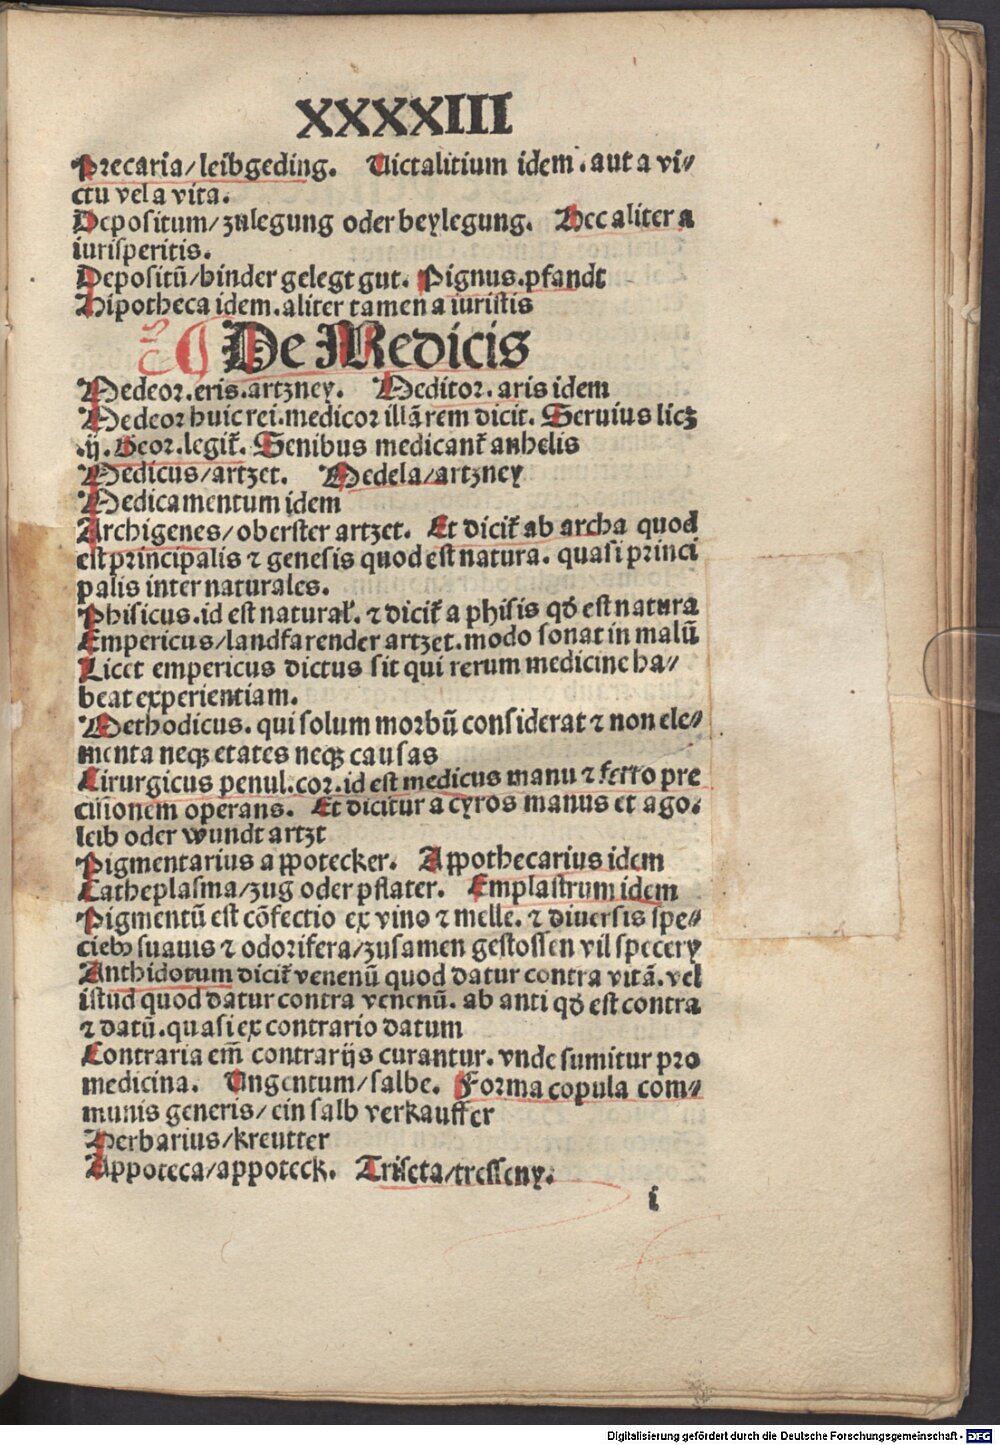 XXXXIII
Precaria/leibgeding. Victalitium idem. aut a vi⸗
ctu vel a vita.
Depositum/zulegung oder beylegung. Hec aliter a
iurisperitis.
Depositū/hinder gelegt gut. Pignus.pfandt
Hipotheca idem.aliter tamen a iuristis
De Medicis
Medeor.eris.artzney. Meditor.aris idem
Medeor huic rei.medicor illā rem dicit. Seruius licz
.ij. Geor.legit̄. Senibus medicant̄ anhelis
Medicus/artzet. Medela/artzney
Medicamentum idem
Archigenes/oberster artzet. Et dicit̄ ab archa quod
est principalis ⁊ genesis quod est natura. quasi princi
palis inter naturales.
Phisicus.id est natural̄. ⁊ dicit̄ a phisis qd̄ est natura
Empericus/landfarender artzet.modo sonat in malū
Licet empericus dictus sit qui rerum medicine ha⸗
beat experientiam.
Methodicus. qui solum morbū considerat ⁊ non ele⸗
menta neqꝫ etates neqꝫ causas
Cirurgicus penul.cor.id est medicus manu ⁊ ferro pre
cisionem operans. Et dicitur a cyros manus et ago.
leib oder wundt artzt
Pigmentarius appotecker. Appothecarius idem
Catheplasma/zug oder pflater. Emplastrum idem
Pigmentū est cōfectio ex vino ⁊ melle. ⁊ diuersis spe⸗
ciebꝫ suauis ⁊ odorifera/zusamen gestossen vil specery
Anthidotum dicit̄ venenū quod datur contra vitā. vel
istud quod datur contra venenū. ab anti qd̄ est contra
⁊ datū.quasi ex contrario datum
Contraria em̄ contrarijs curantur. vnde sumitur pro
medicina. Vngentum/salbe. Formacopula com⸗
munis generis/ein salb verkauffer
Herbarius/kreutter
Appoteca/appoteck. Triseta/tresseny.
i
Digitalisierung gefördert durch die Deutsche Forschungsgemeinschaft - DFG